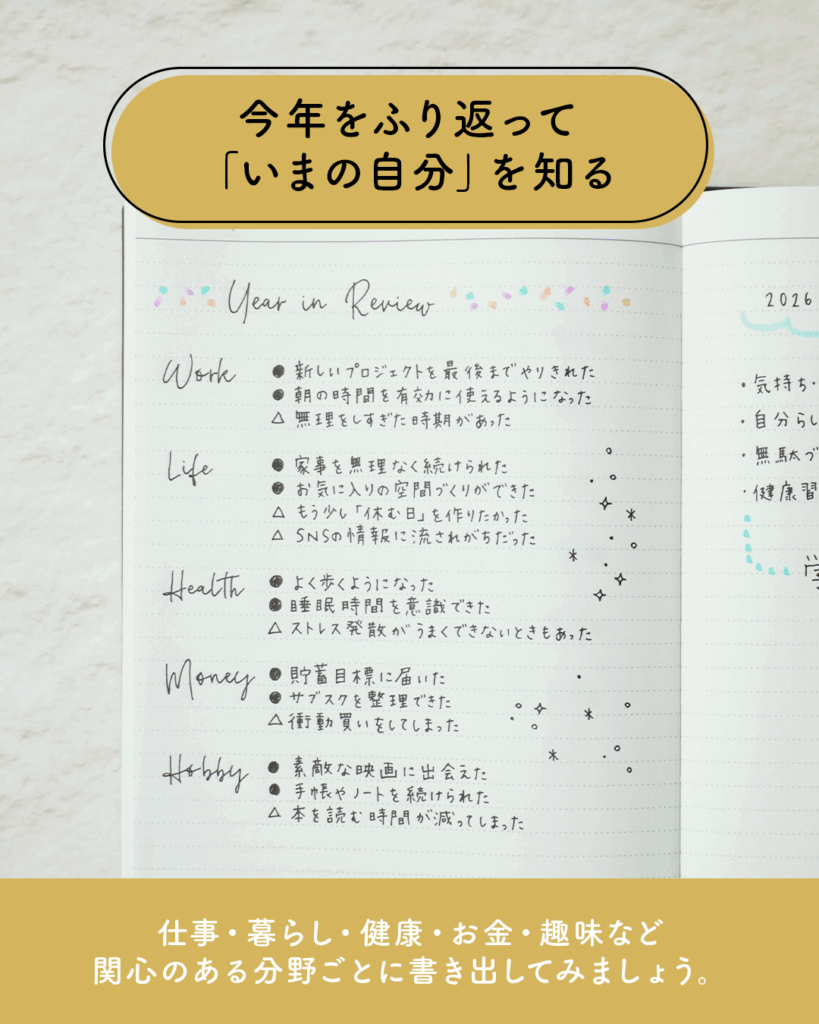 今年をふり返って
「いまの自分」を知る
Year in Review
Work
● 新しいプロジェクトを最後までやりきれた
● 朝の時間を有効に使えるようになった
△ 無理をしすぎた時期があった
Life
● 家事を無理なく続けられた
● お気に入りの空間づくりができた
△ もう少し「休む日」を作りたかった
△ SNSの情報に流されがちだった
Health
● よく歩くようになった
● 睡眠時間を意識できた
△ ストレス発散がうまくできないときもあった
Money
● 貯蓄目標に届いた
● サブスクを整理できた
△ 衝動買いをしてしまった
Hobby
● 素敵な映画に出会えた
● 手帳やノートを続けられた
△ 本を読む時間が減ってしまった
2026
・気持ち・
・自分らし
・無駄づ
・健康習
仕事・暮らし・健康・お金・趣味など
関心のある分野ごとに書き出してみましょう。